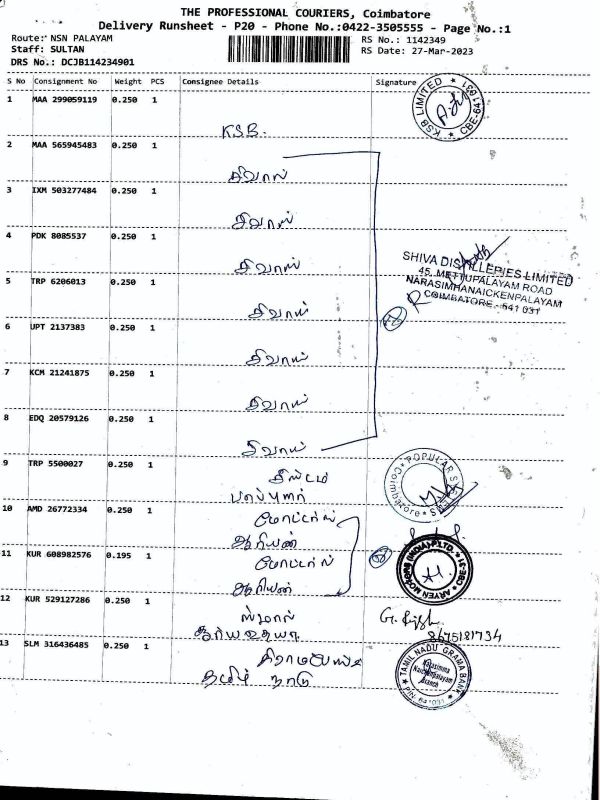 THE PROFESSIONAL COURIERS, Coimbatore
Delivery Runsheet - P20 - Phone No.:0422-3505555 - Page No.:1
Route: NSN PALAYAM
RS No.: 1142349
Staff: SULTAN
RS Date: 27-Mar-2023
DRS No.: DCJB114234901
S No Consignment No Weight PCS Consignee Details Signature
1 MAA 299059119 0.250 1
KSB.
KSB LIMITED CBE-641 031
2 MAA 565945483 0.250 1
சிவாஸ்
3 IXM 503277484 0.250 1
சிவாஸ்
4 PDK 8085537 0.250 1
சிவாஸ்
SHIVA DISTILLERIES LIMITED
45, METTUPALAYAM ROAD
NARASIMHANAICKENPALAYAM
COIMBATORE - 641 031
5 TRP 6206013 0.250 1
சிவாஸ்
6 UPT 2137383 0.250 1
சிவாஸ்
7 KCM 21241875 0.250 1
சிவாஸ்
8 EDQ 20579126 0.250 1
சிவாஸ்
9 TRP 5500027 0.250 1
POPULAR SYSTEMS Coimbatore
10 AMD 26772334 0.250 1
மோட்டர்ஸ்
ஆரியன்
11 KUR 608982576 0.195 1
மோட்டர்ஸ்
ஆரியன்
ARYEN MOTORS (INDIA) P LTD. CBE-31
12 KUR 529127286 0.250 1
8675181734
13 SLM 316436485 0.250 1
தமிழ் நாடு
TAMIL NADU GRAMA BANK
Narasimma
Naickenpalayam
Branch
PIN: 641031